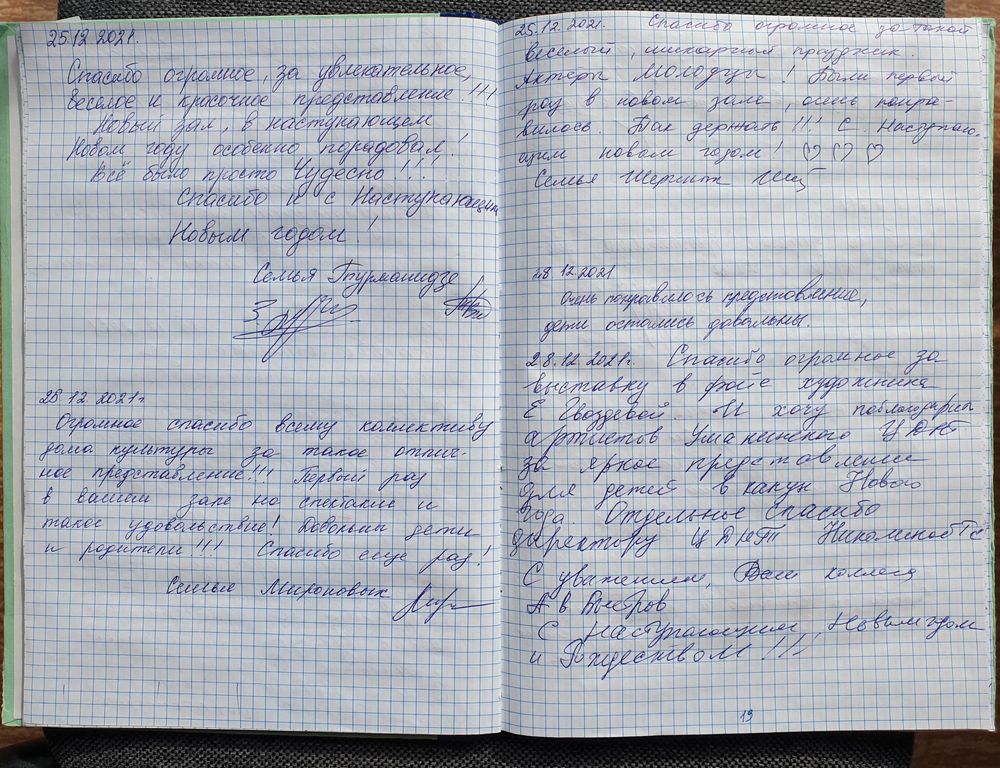 25.12.2021.
Спасибо огромное, за увлекательное,
веселое и красочное представление!!!
Новый зал, в наступающем
Новом году особенно порадовал!
Всё было просто Чудесно!!!
Спасибо и с Наступающим
Новым годом!
Семья Турманидзе
25 12 2021г
Огромное спасибо всему коллективу
дома культуры за такое отлич-
ное представление!!! Первый раз
в вашем зале на спектакле и
такое удовольствие! Довольны дети
и родители!!! Спасибо еще раз!
Семья Мироновых
25.12.2021. Спасибо огромное за такой
веселый, шикарный праздник.
Актеры Молодцы! Были первый
раз в новом зале, очень понра-
вилось. Так держать!!! С Наступаю-
щим новым годом! ♡♡♡
Семья
28 12.2021
Очень понравилось представление,
дети остались довольны.
28.12.2021г. Спасибо огромное за
выставку в фойе художника
Е Гвоздевой. И хочу поблагодарить
артистов Ушакинского ЦДНТ
за яркое представление
для детей в канун Нового
года Отдельное спасибо
директору ЦДНТ
С уважением, Ваш коллега
А в Быстров
С Наступающим, Новым годом
и Рождеством!!!
19